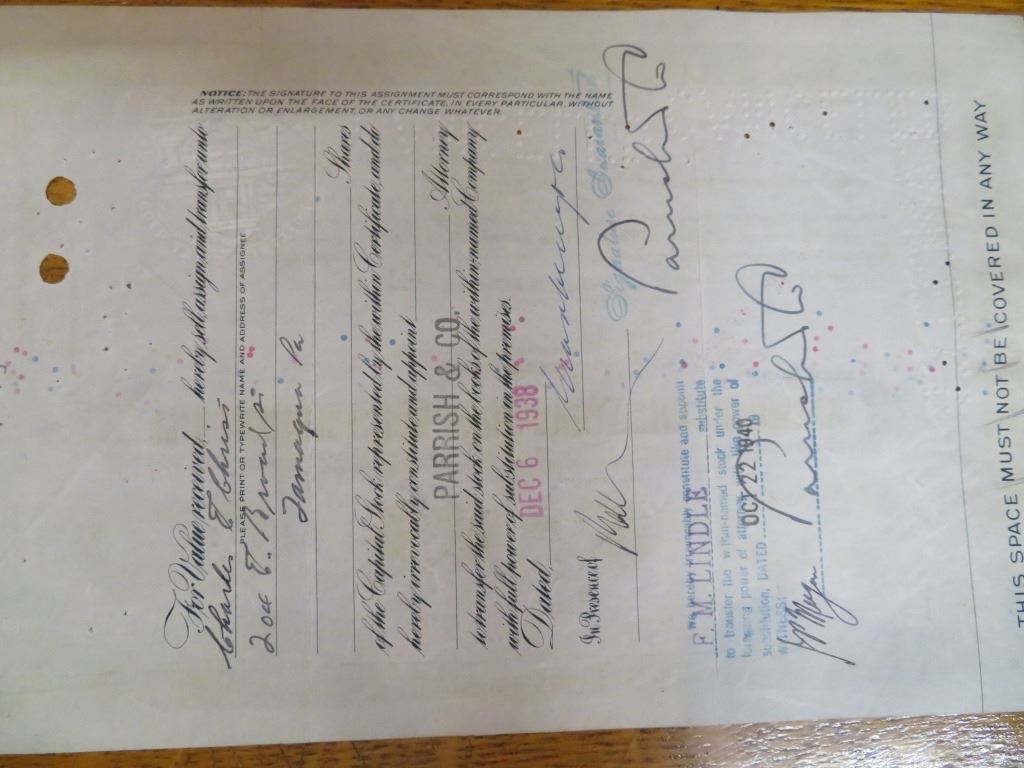 NOTICE: THE SIGNATURE TO THIS ASSIGNMENT MUST CORRESPOND WITH THE NAME
AS WRITTEN UPON THE FACE OF THE CERTIFICATE, IN EVERY PARTICULAR, WITHOUT
ALTERATION OR ENLARGEMENT, OR ANY CHANGE WHATEVER.
For Value received, hereby sell, assign and transfer unto
Charles
PLEASE PRINT OR TYPEWRITE NAME AND ADDRESS OF ASSIGNEE
E. Broad St
Tamaqua Pa
Shares
of the Capital Stock represented by the within Certificate, and do
hereby irrevocably constitute and appoint
PARRISH & CO. Attorney
to transfer the said stock on the books of the within-named Company
with full power of substitution in the premises.
Dated, DEC 6 1938
In Presence of
Signature Guaranteed
Parrish & Co
We hereby irrevocably constitute and appoint
F. M. LINDLE substitute
to transfer the within-named stock under the
foregoing power of attorney with like power of
substitution, DATED OCT 22 1940 19
WITNESS:
Parrish & Co
THIS SPACE MUST NOT BE COVERED IN ANY WAY